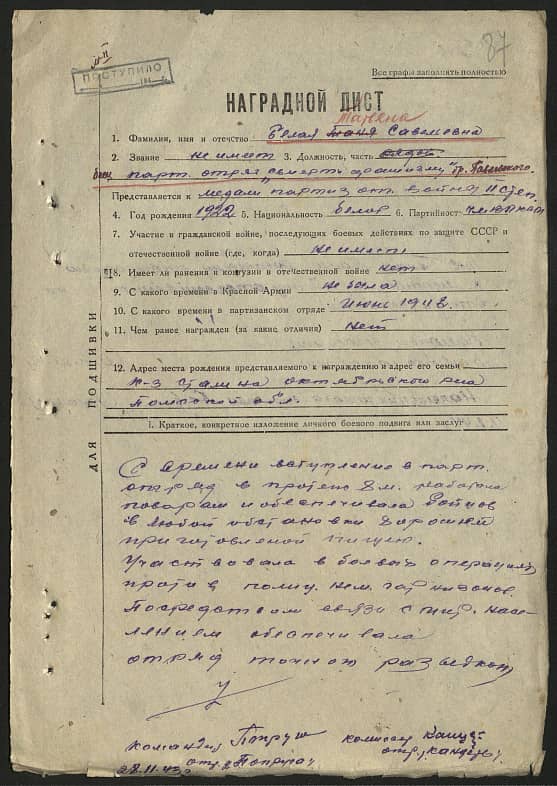 87
ПОСТУПИЛО
Все графы заполнять полностью
НАГРАДНОЙ ЛИСТ
Татьяна
1. Фамилия, имя и отчество Белая Таня Савельевна
2. Звание не имеет 3. Должность, часть рядов
боец парт. отряд "Смерть фашизму" бр.
Представляется к медали партиз. от. война II степ.
4. Год рождения 1922 5. Национальность белор 6. Партийность
7. Участие в гражданской войне, последующих боевых действиях по защите СССР и
отечественной войне (где, когда) не имеет
8. Имеет ли ранения и контузии в отечественной войне нет
9. С какого времени в Красной Армии не была
10. С какого времени в партизанском отряде июнь 1942
11. Чем ранее награжден (за какие отличия) нет
12. Адрес места рождения представляемого к награждению и адрес его семьи
к-з Сталина октябрьского р-на
Полесской обл.
I. Краткое, конкретное изложение личного боевого подвига или заслуг
ДЛЯ ПОДШИВКИ
С времени вступление в парт.
отряд в протежо 8 м. работала
поваром и обеспечивала бойцов
в любой обстановки хорошей
приготовленой пищею.
Участвовала в боевых операциях
против полиц. нем. гарнизонов.
Посредством связи с мир. насе-
лением обеспечивала
отряд точной разведкой
командир Попруш комиссар
28.11.43г. отр. /Попруш/ отр.